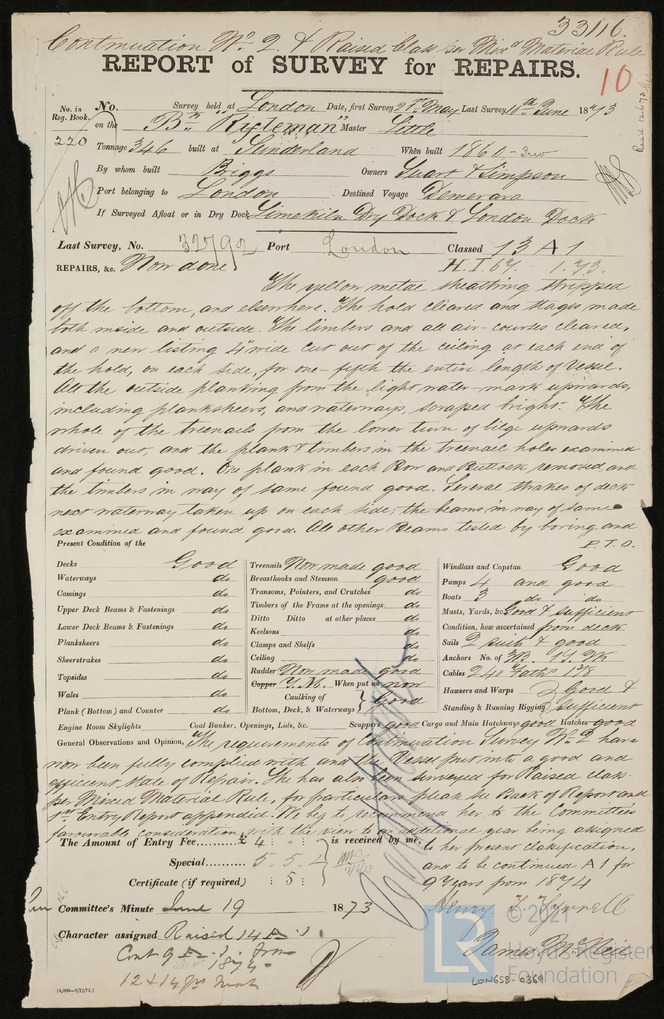 33116.
Continuation No 2 & Raised Class per Mixd Material Rule
REPORT of SURVEY for REPAIRS.
10
No. in Reg. Book. No. Survey held at London Date, first Survey 21st May Last Survey 10th June 1873
220 on the Bk "Rifleman" Master Little
Tonnage 346 built at Sunderland When built 1860
By whom built Briggs Owners Stuart & Simpson
Port belonging to London Destined Voyage Demerara
If Surveyed Afloat or in Dry Dock Limekiln Dry Dock & London Dock
Last Survey, No. 32792 Port London Classed 13 A 1
REPAIRS, &c. Now done H.T. 67. 1.73.
The yellow metal sheathing stripped
off the bottom, and elsewhere. The hold cleared and stages made
both inside and outside. The limbers and all air-courses cleared,
and a new listing 4" wide cut out of the ceiling at each end of
the hold, on each side, for one-fifth the entire length of Vessel.
All the outside planking from the light water-mark upwards,
including planksheers, and waterways, scraped bright. The
whole of the treenails from the lower turn of bilge upwards
driven out, and the plank & timbers in the treenail holes examined
and found good. One plank in each Bow and Buttock removed, and
the timbers in way of same found good. Several strakes of deck
next waterway taken up on each side, the beams in way of same
examined and found good. All other Beams tested by boring and
P.T.O.
Present Condition of the
Decks Good
Waterways do
Comings do
Upper Deck Beams & Fastenings do
Lower Deck Beams & Fastenings do
Planksheers do
Sheerstrakes do
Topsides do
Wales do
Plank (Bottom) and Counter do
Treenails Now made good
Breasthooks and Stemson good
Transoms, Pointers, and Crutches do
Timbers of the Frame at the openings do
Ditto Ditto at other places do
Keelsons do
Clamps and Shelfs do
Ceiling do
Rudder Now made good
Copper Y.M. When put on now
Caulking of Bottom, Deck, & Waterways } Good
Windlass and Capstan Good
Pumps 4 and good
Boats 3 do do
Masts, Yards, &c. Good & sufficient
Condition, how ascertained from deck
Sails 2 suits & good
Anchors No. of 3B. 1S. 2K
Cables 240 Fath 1 3/8
Hawsers and Warps } Good &
Standing & Running Rigging } sufficient
Engine Room Skylights Coal Bunker, Openings, Lids, &c. Scuppers good Cargo and Main Hatchways good Hatches good
General Observations and Opinion, The requirements of Continuation Survey No 2 have
now been fully complied with and the Vessel put into a good and
efficient state of Repair. She has also been surveyed for Raised class
per Mixed Material Rule, for particulars please see Back of Report and
1st Entry Report appended. We beg to recommend her to the Committee's
favourable consideration, with the view to an additional year being assigned
to her present classification,
and to be continued A1 for
9 Years from 1874
The Amount of Entry Fee......... £ 4 : : is received by me,
Special......... 5 . 5 .
Certificate (if required) : 5 :
Henry J. Tyrrell
James McNeil
Committee's Minute June 19 1873
Character assigned Raised 14 A 1
Cont 9 from
1874
[4,000—9/12/72.]
LON658-0369
© 2021
LR
Lloyd's Register
Foundation